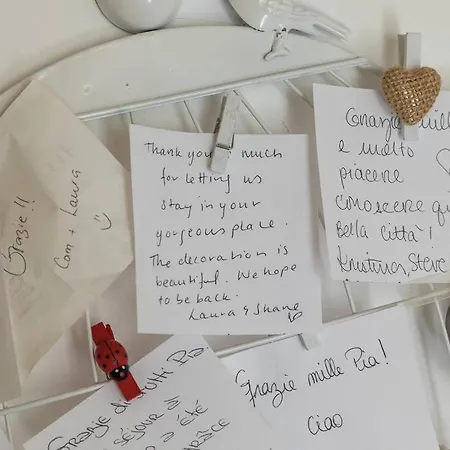 Grazie!!
Com + Laura
Thank you much
for letting us
stay in your
gorgeous place.
The decoration is
beautiful. We hope
to be back.
Laura & Shane
Grazie mill
e molto
piacere
conoscere qu
Bella città!
Kristina, Steve
Grazie di tutti Pia
séjour
été
Grazie mille Pia!
ciao